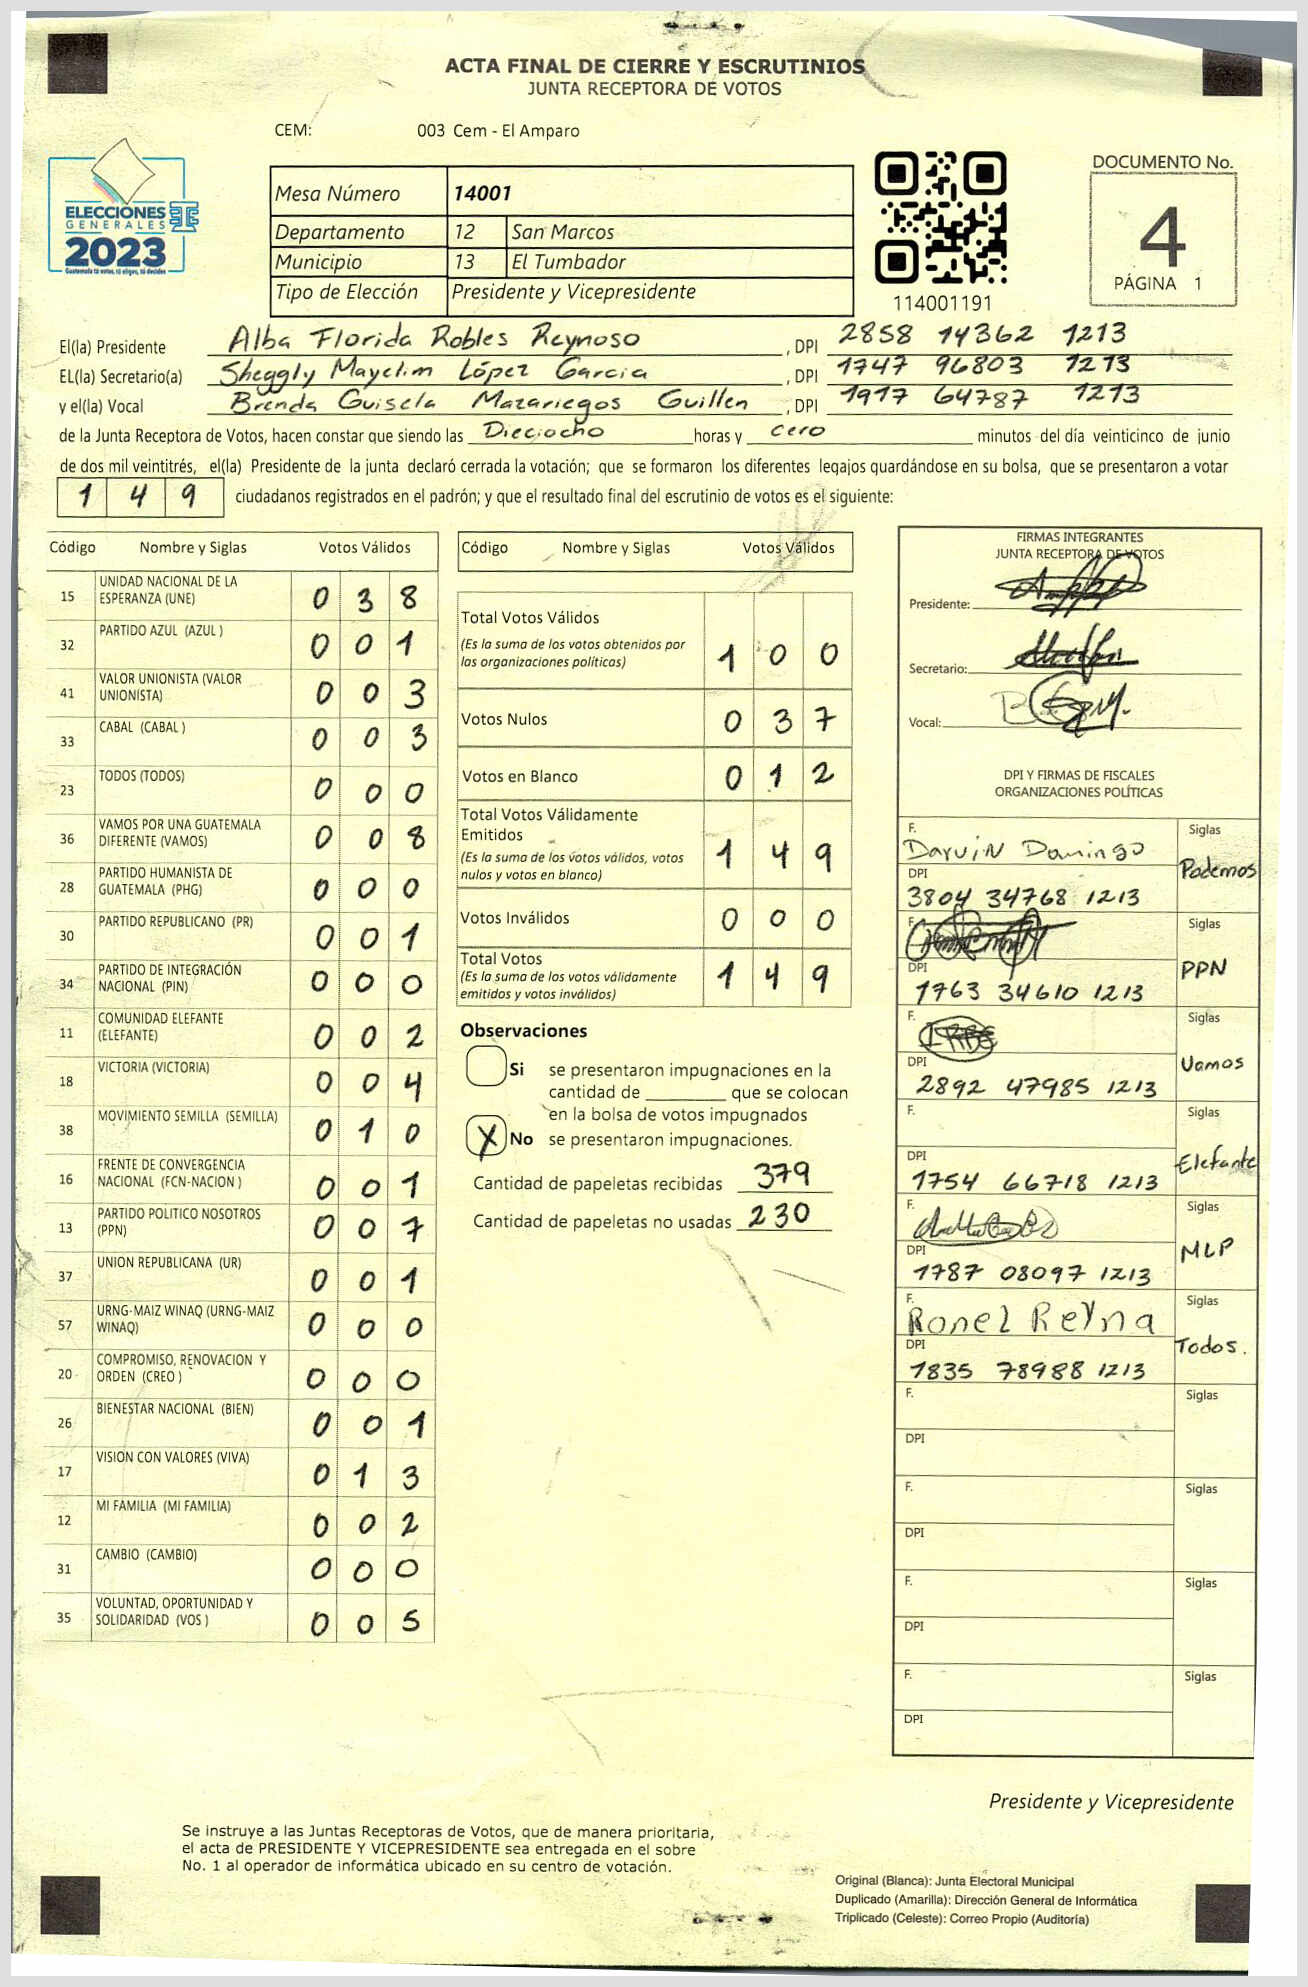 ACTA FINAL DE CIERRE Y ESCRUTINIOS
JUNTA RECEPTORA DE VOTOS
CEM: 003 Cem - El Amparo
ELECCIONES
GENERALES
2023
Guatemala tú votas, tú eliges, tú decides
Mesa Número 14001
Departamento 12 San Marcos
Municipio 13 El Tumbador
Tipo de Elección Presidente y Vicepresidente
114001191
DOCUMENTO No.
4
PÁGINA 1
El(la) Presidente Alba Florida Robles Reynoso, DPI 2858 14362 1213
EL(la) Secretario(a) Sheggly Mayelim López Garcia, DPI 1747 96803 1213
y el(la) Vocal Brenda Guisela Mazariegos Guillen, DPI 1917 64787 1213
de la Junta Receptora de Votos, hacen constar que siendo las Dieciocho horas y cero minutos del día veinticinco de junio
de dos mil veintitrés, el(la) Presidente de la junta declaró cerrada la votación; que se formaron los diferentes legajos guardándose en su bolsa, que se presentaron a votar
149 ciudadanos registrados en el padrón; y que el resultado final del escrutinio de votos es el siguiente:
Código Nombre y Siglas Votos Válidos
15 UNIDAD NACIONAL DE LA ESPERANZA (UNE) 0 3 8
32 PARTIDO AZUL (AZUL ) 0 0 1
41 VALOR UNIONISTA (VALOR UNIONISTA) 0 0 3
33 CABAL (CABAL ) 0 0 3
23 TODOS (TODOS) 0 0 0
36 VAMOS POR UNA GUATEMALA DIFERENTE (VAMOS) 0 0 8
28 PARTIDO HUMANISTA DE GUATEMALA (PHG) 0 0 0
30 PARTIDO REPUBLICANO (PR) 0 0 1
34 PARTIDO DE INTEGRACIÓN NACIONAL (PIN) 0 0 0
11 COMUNIDAD ELEFANTE (ELEFANTE) 0 0 2
18 VICTORIA (VICTORIA) 0 0 4
38 MOVIMIENTO SEMILLA (SEMILLA) 0 1 0
16 FRENTE DE CONVERGENCIA NACIONAL (FCN-NACION ) 0 0 1
13 PARTIDO POLITICO NOSOTROS (PPN) 0 0 7
37 UNION REPUBLICANA (UR) 0 0 1
57 URNG-MAIZ WINAQ (URNG-MAIZ WINAQ) 0 0 0
20 COMPROMISO, RENOVACION Y ORDEN (CREO ) 0 0 0
26 BIENESTAR NACIONAL (BIEN) 0 0 1
17 VISION CON VALORES (VIVA) 0 1 3
12 MI FAMILIA (MI FAMILIA) 0 0 2
31 CAMBIO (CAMBIO) 0 0 0
35 VOLUNTAD, OPORTUNIDAD Y SOLIDARIDAD (VOS ) 0 0 5
Código Nombre y Siglas Votos Válidos
Total Votos Válidos
(Es la suma de los votos obtenidos por
las organizaciones políticas) 1 0 0
Votos Nulos 0 3 7
Votos en Blanco 0 1 2
Total Votos Válidamente
Emitidos
(Es la suma de los votos válidos, votos
nulos y votos en blanco) 1 4 9
Votos Inválidos 0 0 0
Total Votos
(Es la suma de los votos válidamente
emitidos y votos inválidos) 1 4 9
Observaciones
Si se presentaron impugnaciones en la
cantidad de ________ que se colocan
en la bolsa de votos impugnados
X No se presentaron impugnaciones.
Cantidad de papeletas recibidas 379
Cantidad de papeletas no usadas 230
FIRMAS INTEGRANTES
JUNTA RECEPTORA DE VOTOS
Presidente:
Secretario:
Vocal:
DPI Y FIRMAS DE FISCALES
ORGANIZACIONES POLÍTICAS
F. Darvin Domingo Siglas
DPI Podemos
3804 34768 1213
F. Siglas
DPI PPN
1763 34610 1213
F. Siglas
DPI Vamos
2892 47985 1213
F. Siglas
DPI Elefante
1754 66718 1213
F. Siglas
DPI MLP
1787 08097 1213
F. Ronel Reyna Siglas
DPI Todos.
1835 78988 1213
F. Siglas
DPI
F. Siglas
DPI
F. Siglas
DPI
F. Siglas
DPI
Presidente y Vicepresidente
Se instruye a las Juntas Receptoras de Votos, que de manera prioritaria,
el acta de PRESIDENTE Y VICEPRESIDENTE sea entregada en el sobre
No. 1 al operador de informática ubicado en su centro de votación.
Original (Blanca): Junta Electoral Municipal
Duplicado (Amarilla): Dirección General de Informática
Triplicado (Celeste): Correo Propio (Auditoría)